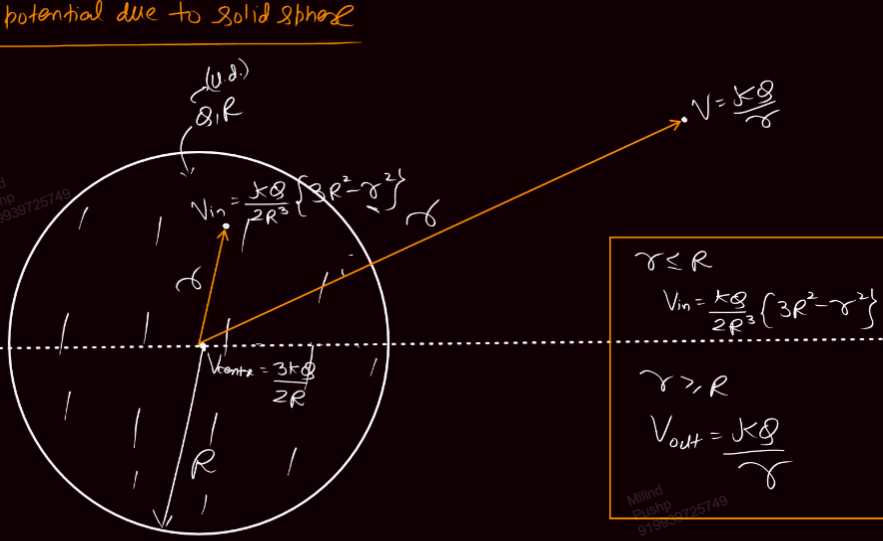 potential due to solid sphere
(u.d.)
Q,R
V = KQ/r
Vin = KQ/2R³ {3R²-r²}
r
r
Vcentre = 3KQ/2R
R
r ≤ R
Vin = KQ/2R³ {3R²-r²}
r ≥ R
Vout = KQ/r
9939725749
Milind
Pushp
919939725749